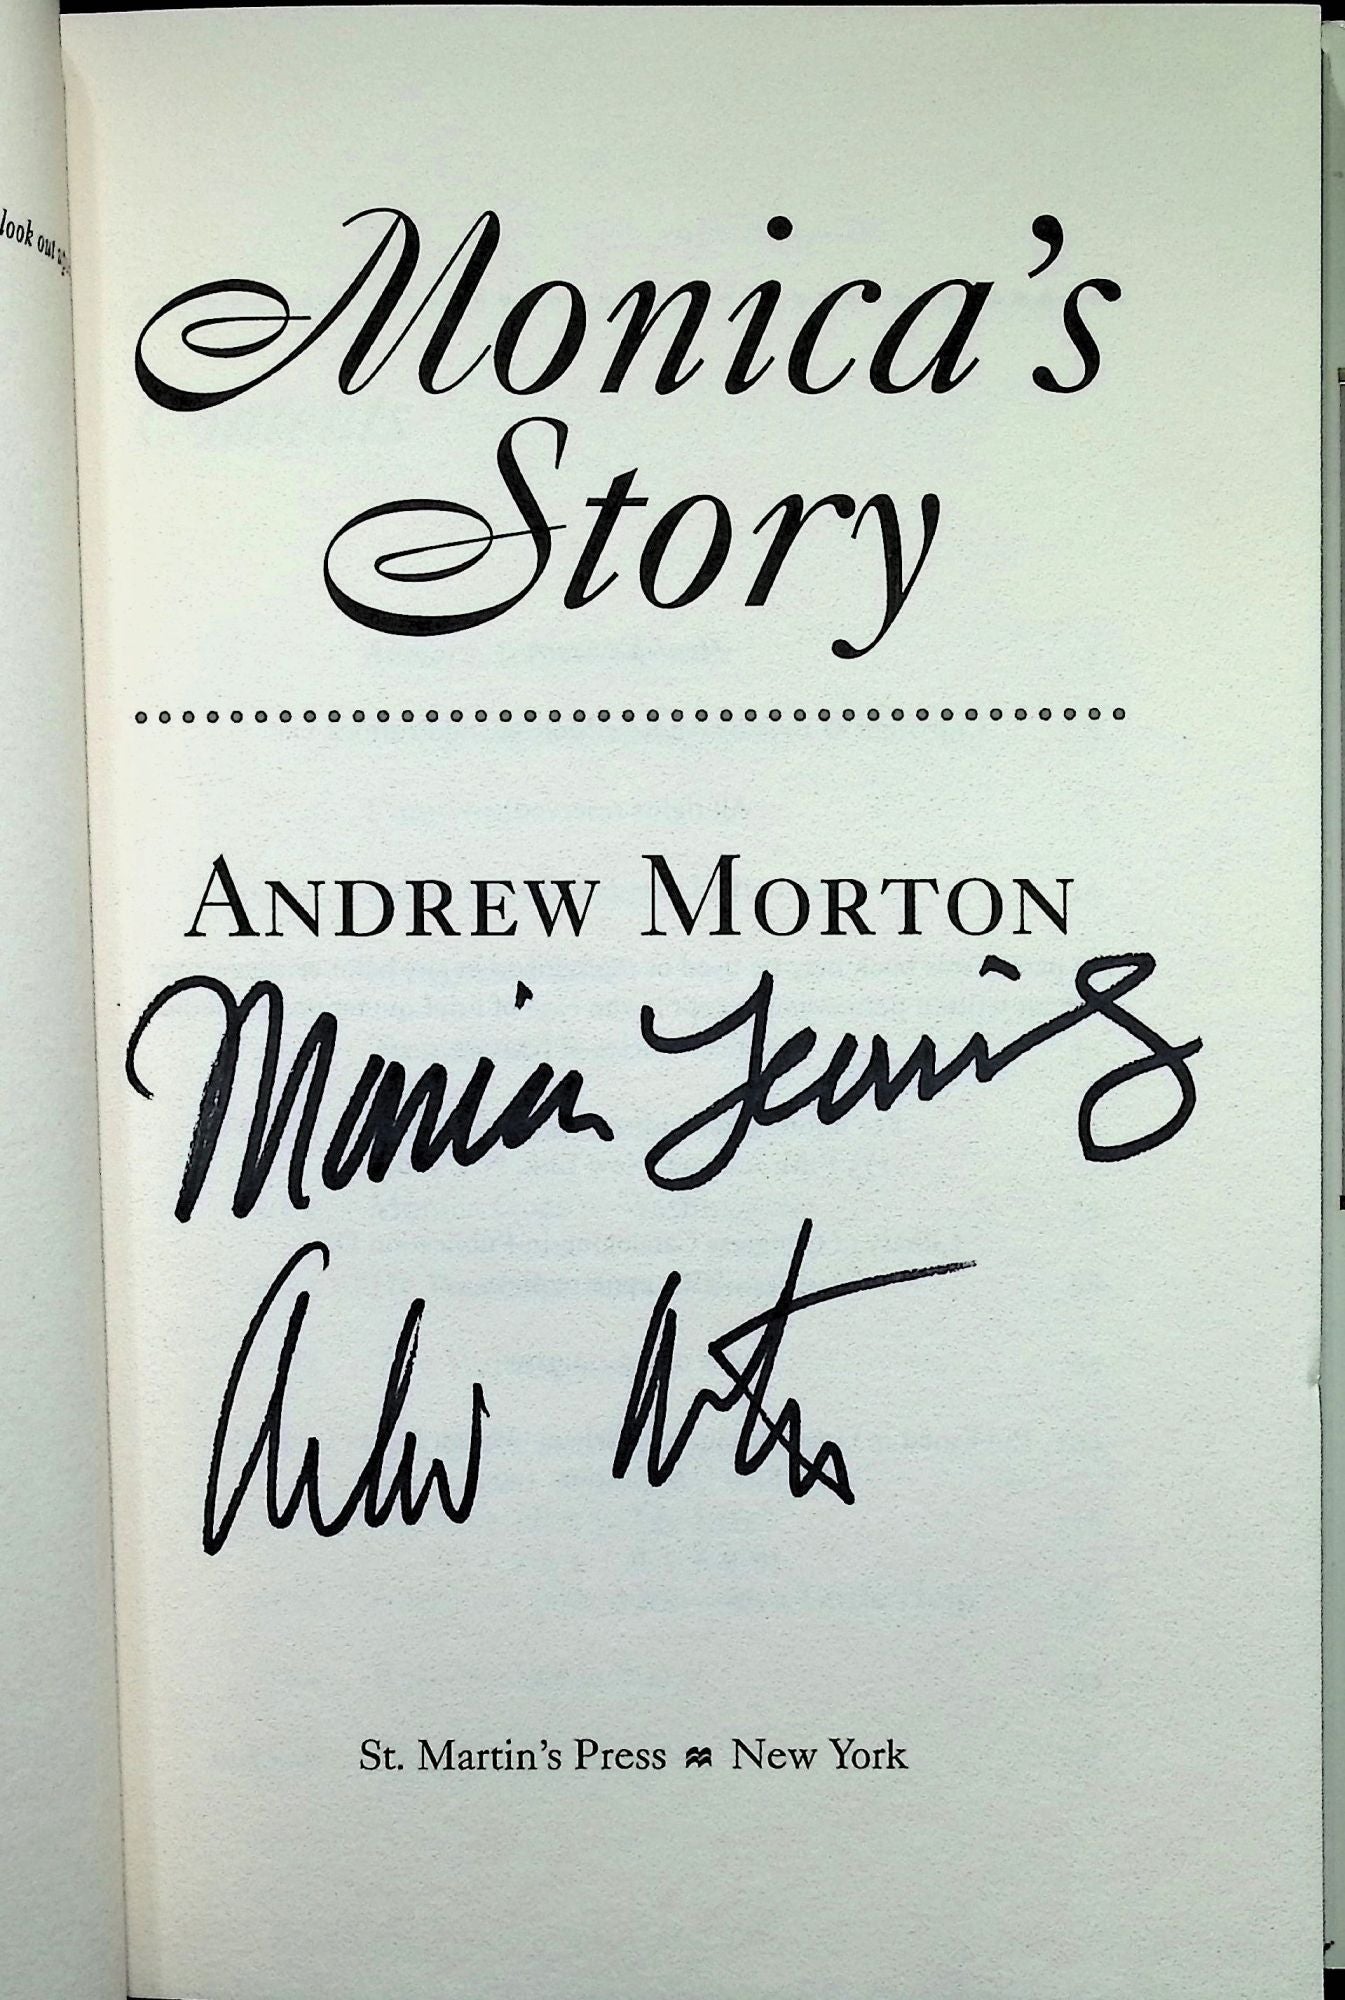 look out
Monica's
Story
ANDREW MORTON
Monica Lewinsky
Andrew Morton
St. Martin's Press New York